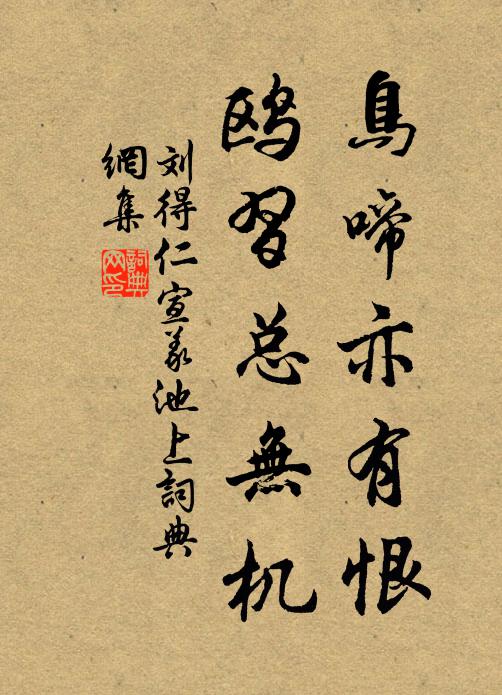 鳥啼亦有恨
鸥習总無机
刘得仁宣義池上詞典
網集
詞典网印